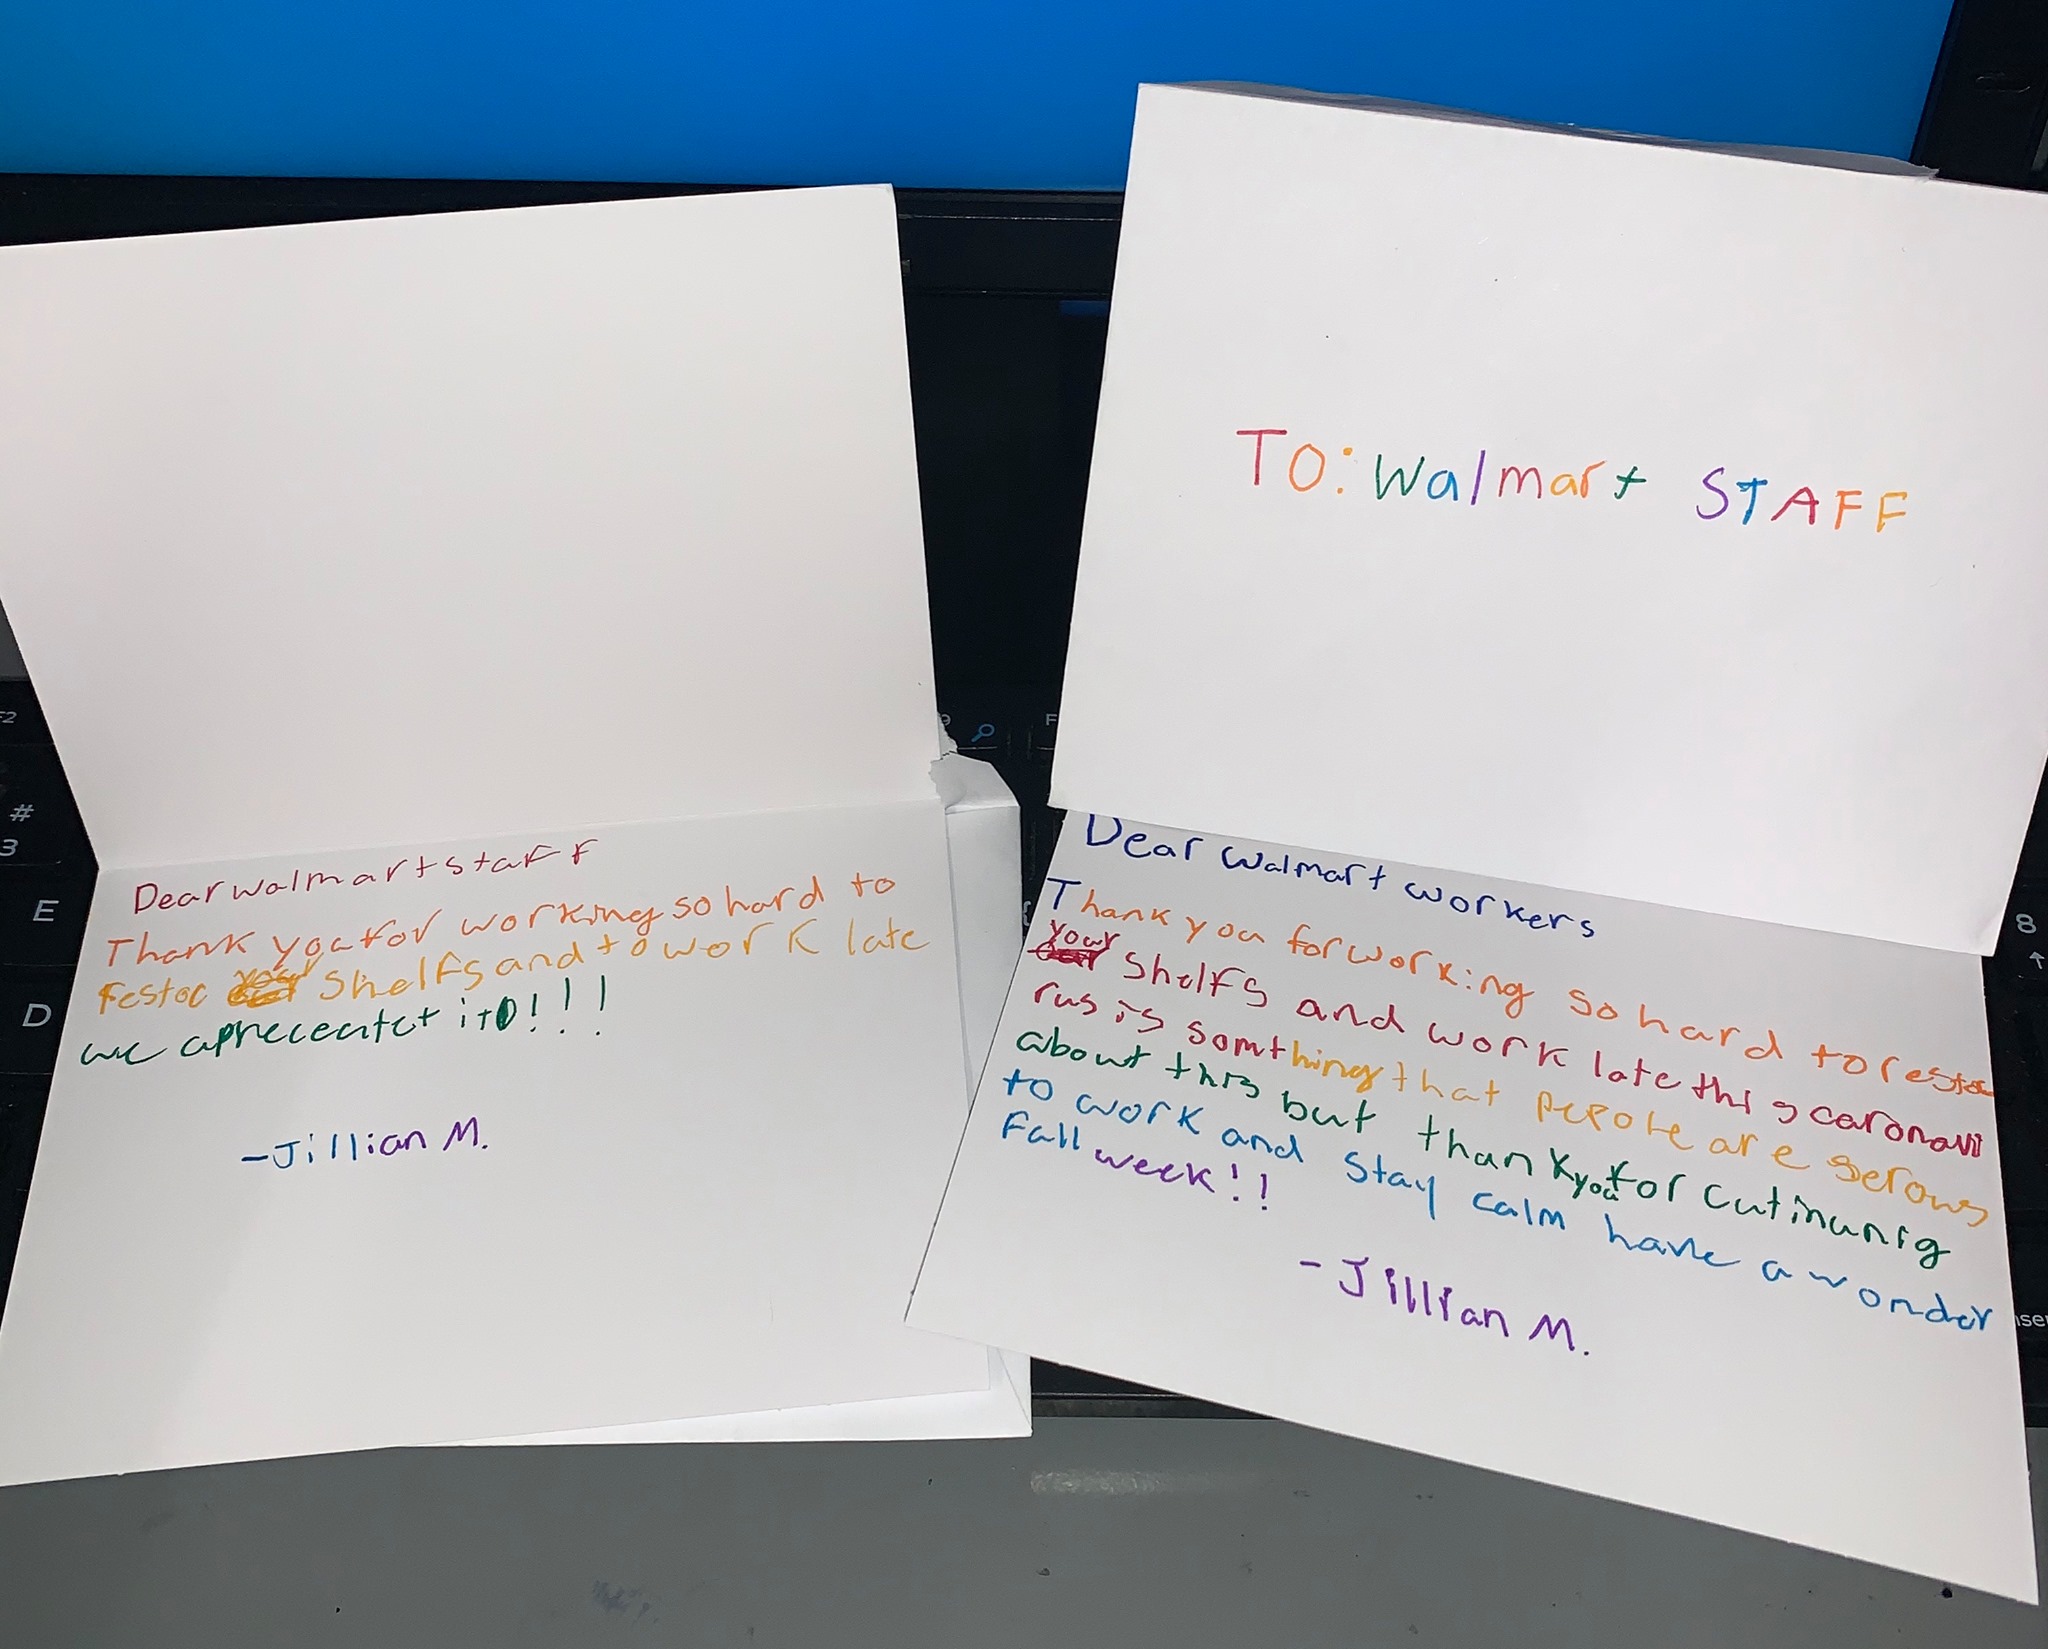 Dear walmart staff
Thank you for working so hard to
restoc your shelfs and to work late
we apreceatet it!!!
-Jillian M.
TO: Walmart STAFF
Dear walmart workers
Thank you for working so hard to restoc
your shelfs and work late this caronavi
rus is somthing that pepole are serows
about this but thank you for cutinunig
to work and stay calm have a wonder
fall week!!
-Jillian M.
F2
9
F
#
3
E
D
8